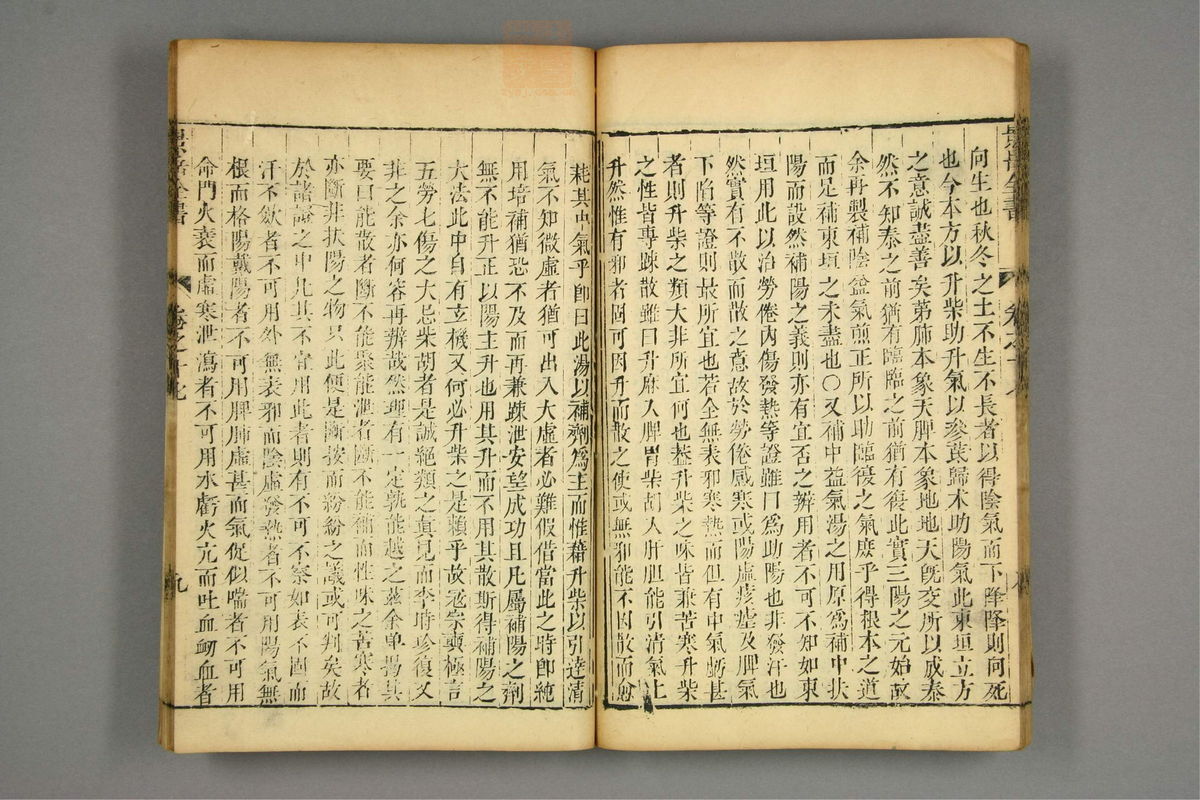 向生也秋冬之土不生不長者以得陰氣而下降降則向死
也今本方以升柴助升氣以參芪歸朮助陽氣此東垣立方
之意誠盡善矣第肺本象天脾本象地地天既交所以成泰
然不知泰之前猶有臨臨之前猶有復此實三陽之元始故
余再製補陰益氣煎正所以助臨復之氣庶乎得根本之道
而足補東垣之未盡也○又補中益氣湯之用原爲補中扶
陽而設然補陽之義則亦有宜否之辨用者不可不知如東
垣用此以治勞倦內傷發熱等證雖曰爲助陽也非發汗也
然實有不散而散之意故於勞倦感寒或陽虛痎瘧及脾氣
下陷等證則最所宜也若全無表邪寒熱而但有中氣虧甚
者則升柴之類大非所宜何也葢升柴之味皆兼苦寒升柴
之性皆專踈散雖曰升麻入脾胃柴胡入肝胆能引清氣上
升然惟有邪者固可因升而散之使或無邪能不因散而愈
耗其中氣乎即曰此湯以補劑爲主而惟藉升柴以引達清
氣不知微虛者猶可出入大虛者必難假借當此之時即純
用培補猶恐不及而再兼踈泄安望成功且凡屬補陽之劑
無不能升正以陽主升也用其升而不用其散斯得補陽之
大法此中自有玄機又何必升柴之是賴乎故寇宗奭極言
五勞七傷之大忌柴胡者是誠絕類之真見而李時珍復又
非之余亦何容再辨哉然理有一定孰能越之茲余單揭其
要曰能散者斷不能聚能泄者斷不能補而性味之苦寒者
亦斷非扶陽之物只此便是斷按而紛紛之議或可判矣故
於諸證之中凡其不宜用此者則有不可不察如表不固而
汗不歛者不可用外無表邪而陰虛發熱者不可用陽氣無
根而格陽戴陽者不可用脾肺虛甚而氣促似喘者不可用
命門火衰而虛寒泄瀉者不可用水虧火亢而吐血衂血者
卷之十七
九